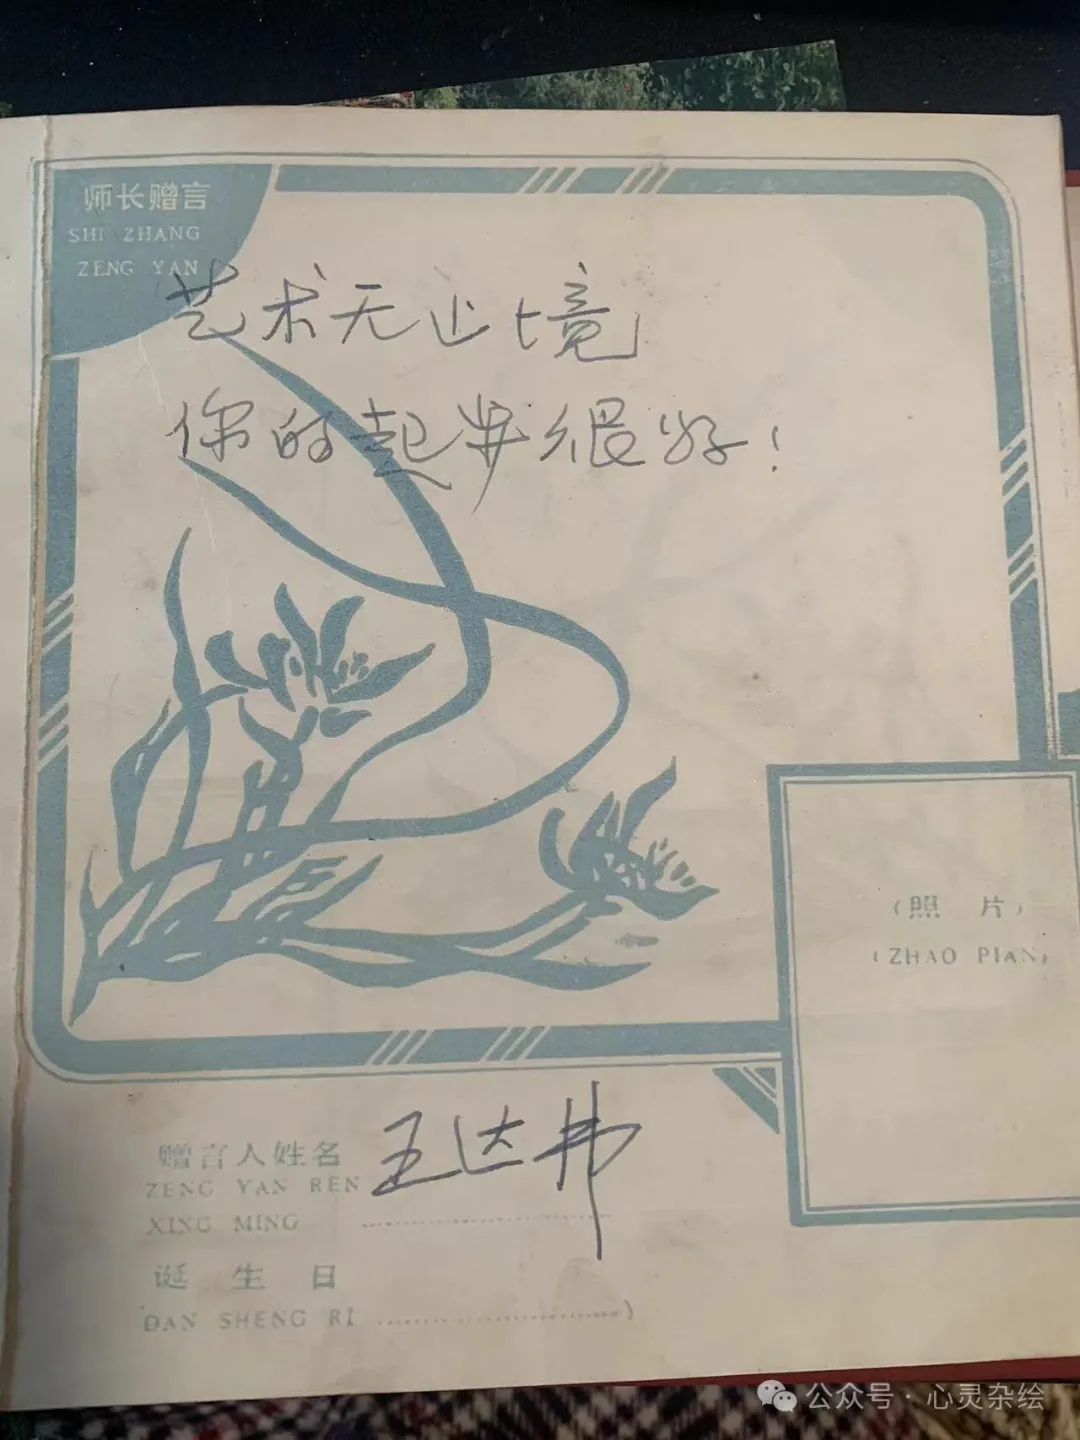 师长赠言
SHI ZHANG
ZENG YAN
艺术无止境
你的起步很好！
（照 片）
（ZHAO PIAN）
赠言人姓名
王达弗
ZENG YAN REN
XING MING
诞 生 日
DAN SHENG RI
公众号·心灵杂绘